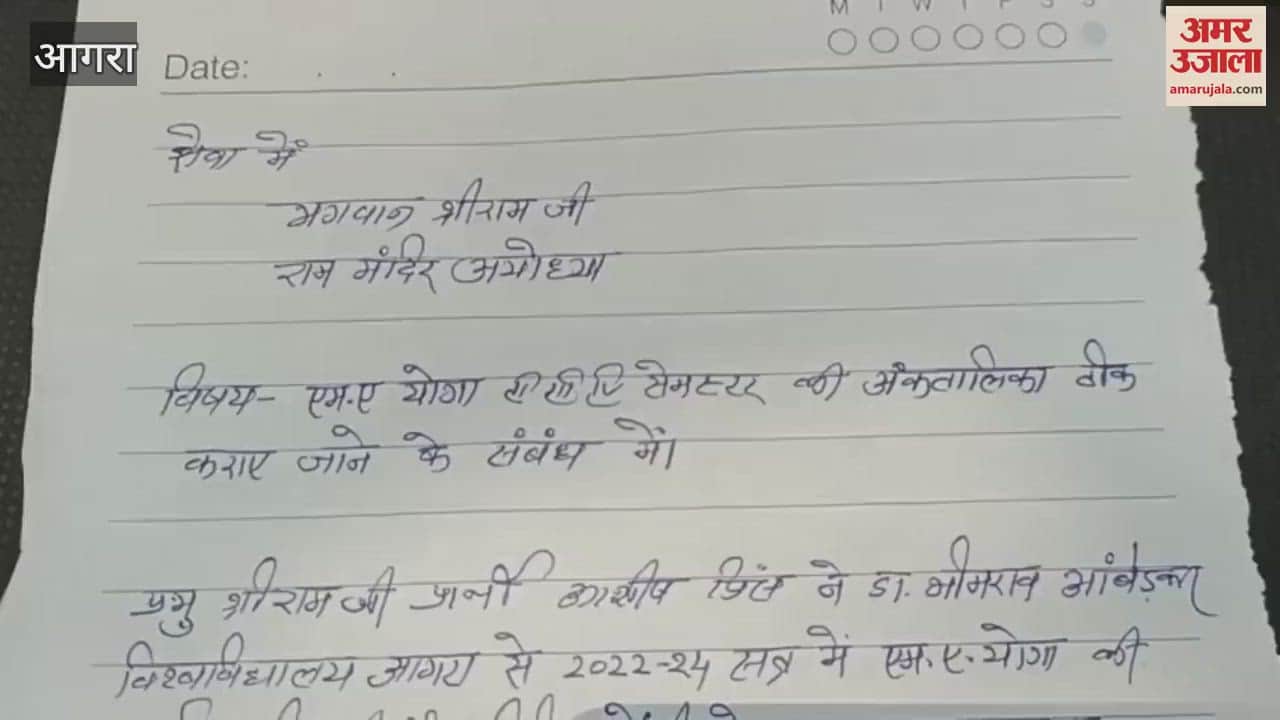 आगरा
अमर
उजाला
amarujala.com
M T W T F S S
Date:
सेवा में
भगवान श्रीराम जी
राम मंदिर अयोध्या
विषय- एम.ए योगा सेमेस्टर की अंकतालिका ठीक
कराए जाने के संबंध में।
प्रभु श्रीराम जी प्रार्थी आशीष प्रिंस ने डा. भीमराव आंबेड़कर
विश्वविद्यालय आगरा से 2022-24 सत्र में एम.ए.योगा की